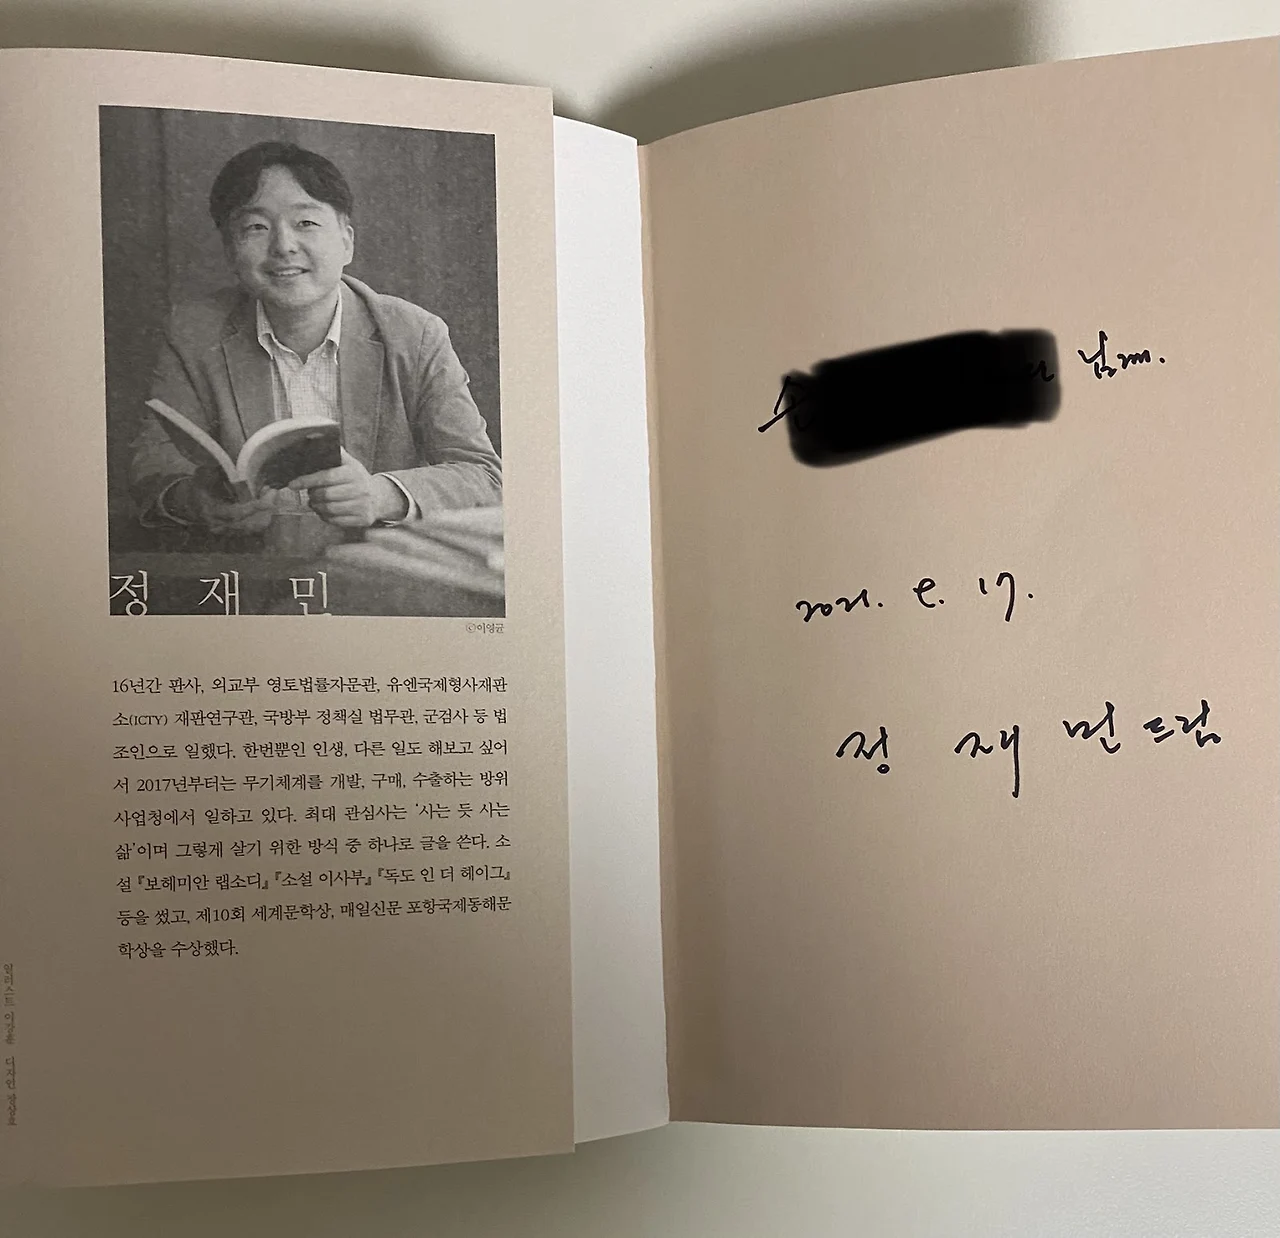 정 재 민
©이영균
16년간 판사, 외교부 영토법률자문관, 유엔국제형사재판
소(ICTY) 재판연구관, 국방부 정책실 법무관, 군검사 등 법
조인으로 일했다. 한번뿐인 인생, 다른 일도 해보고 싶어
서 2017년부터는 무기체계를 개발, 구매, 수출하는 방위
사업청에서 일하고 있다. 최대 관심사는 ‘사는 듯 사는
삶’이며 그렇게 살기 위한 방식 중 하나로 글을 쓴다. 소
설 『보헤미안 랩소디』 『소설 이사부』 『독도 인 더 헤이그』
등을 썼고, 제10회 세계문학상, 매일신문 포항국제동해문
학상을 수상했다.
일러스트 이강훈 디자인 장상호
손 님께.
2021. 17.
정 재 민 드림